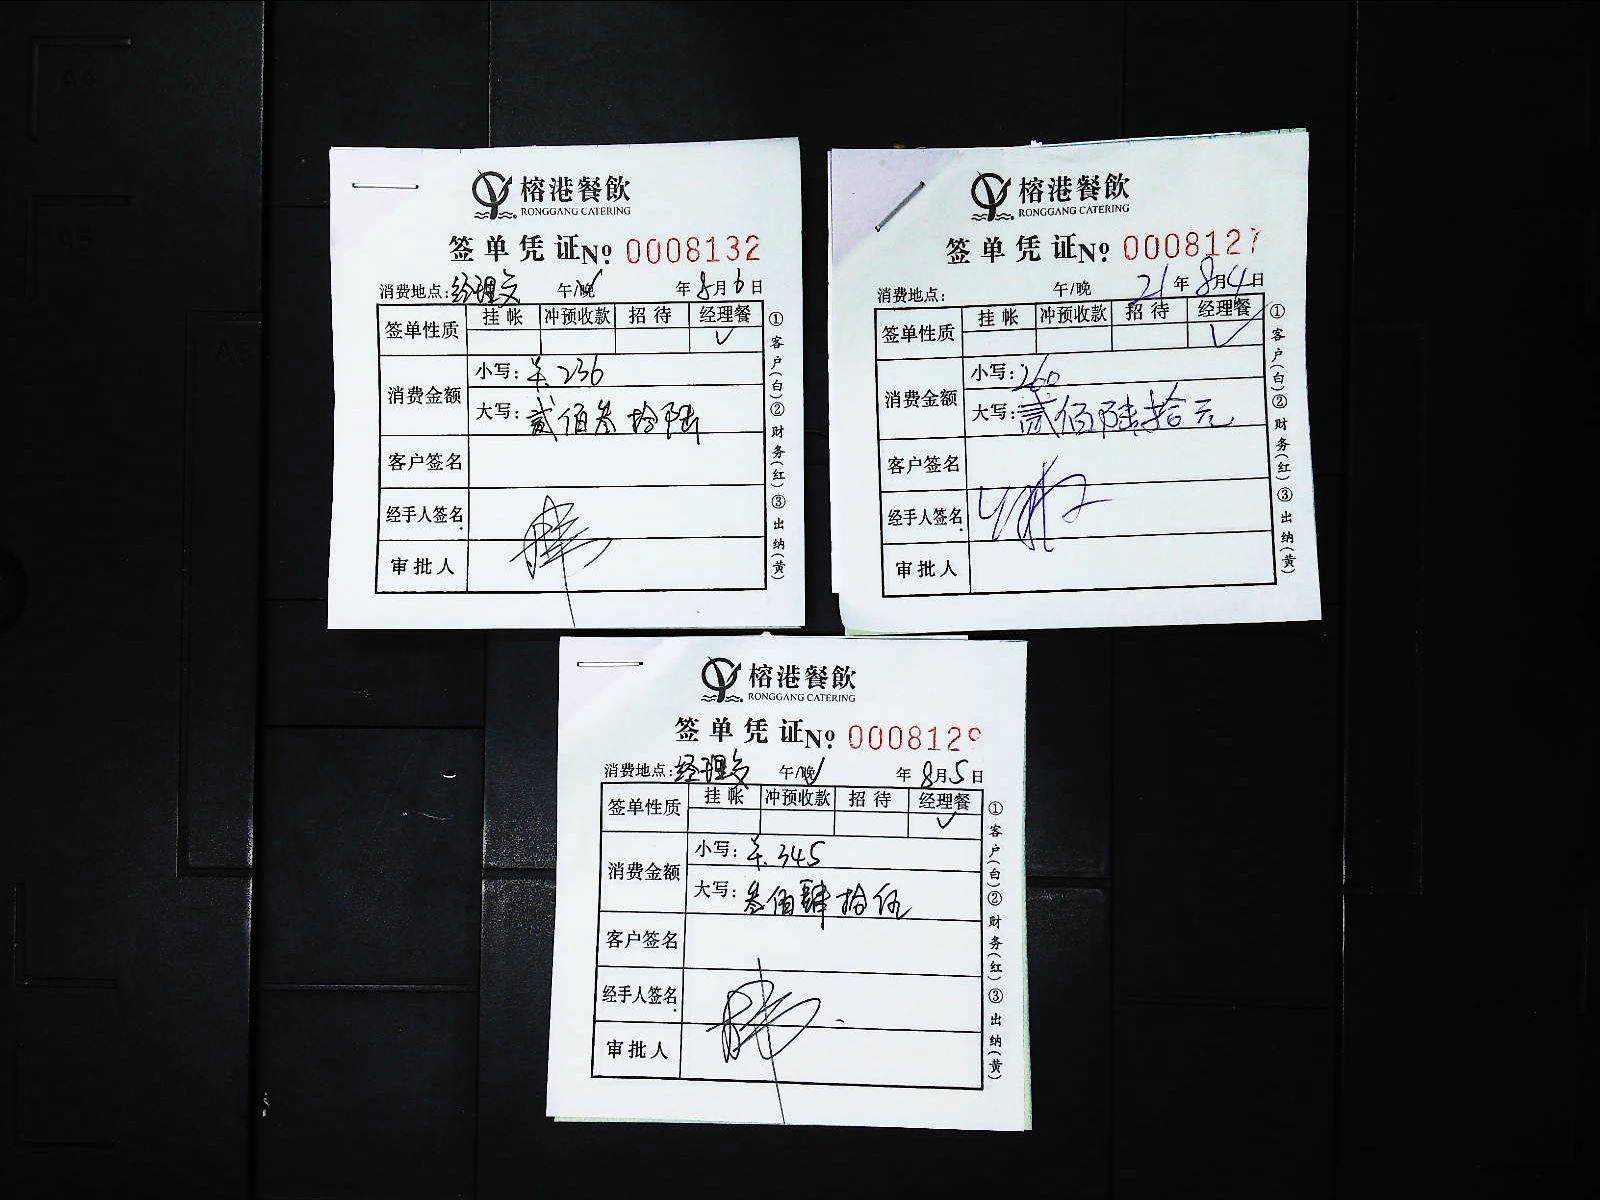 榕港餐飲
RONGGANG CATERING
签单凭证 No 0008132
消费地点:经理餐 午/晚 年8月6日
签单性质 挂帐 冲预收款 招待 经理餐
✓
消费金额 小写: 羊.236
大写: 贰佰叁拾陆
客户签名
经手人签名
审批人
①客户(白)②财务(红)③出纳(黄)
榕港餐飲
RONGGANG CATERING
签单凭证 No 0008127
消费地点: 午/晚 21年8月4日
签单性质 挂帐 冲预收款 招待 经理餐
✓
消费金额 小写: 260
大写: 贰佰陆拾元
客户签名
经手人签名
审批人
①客户(白)②财务(红)③出纳(黄)
榕港餐飲
RONGGANG CATERING
签单凭证 No 0008129
消费地点:经理餐 午/晚 年8月5日
签单性质 挂帐 冲预收款 招待 经理餐
✓
消费金额 小写: 羊.345
大写: 叁佰肆拾伍
客户签名
经手人签名
审批人
①客户(白)②财务(红)③出纳(黄)